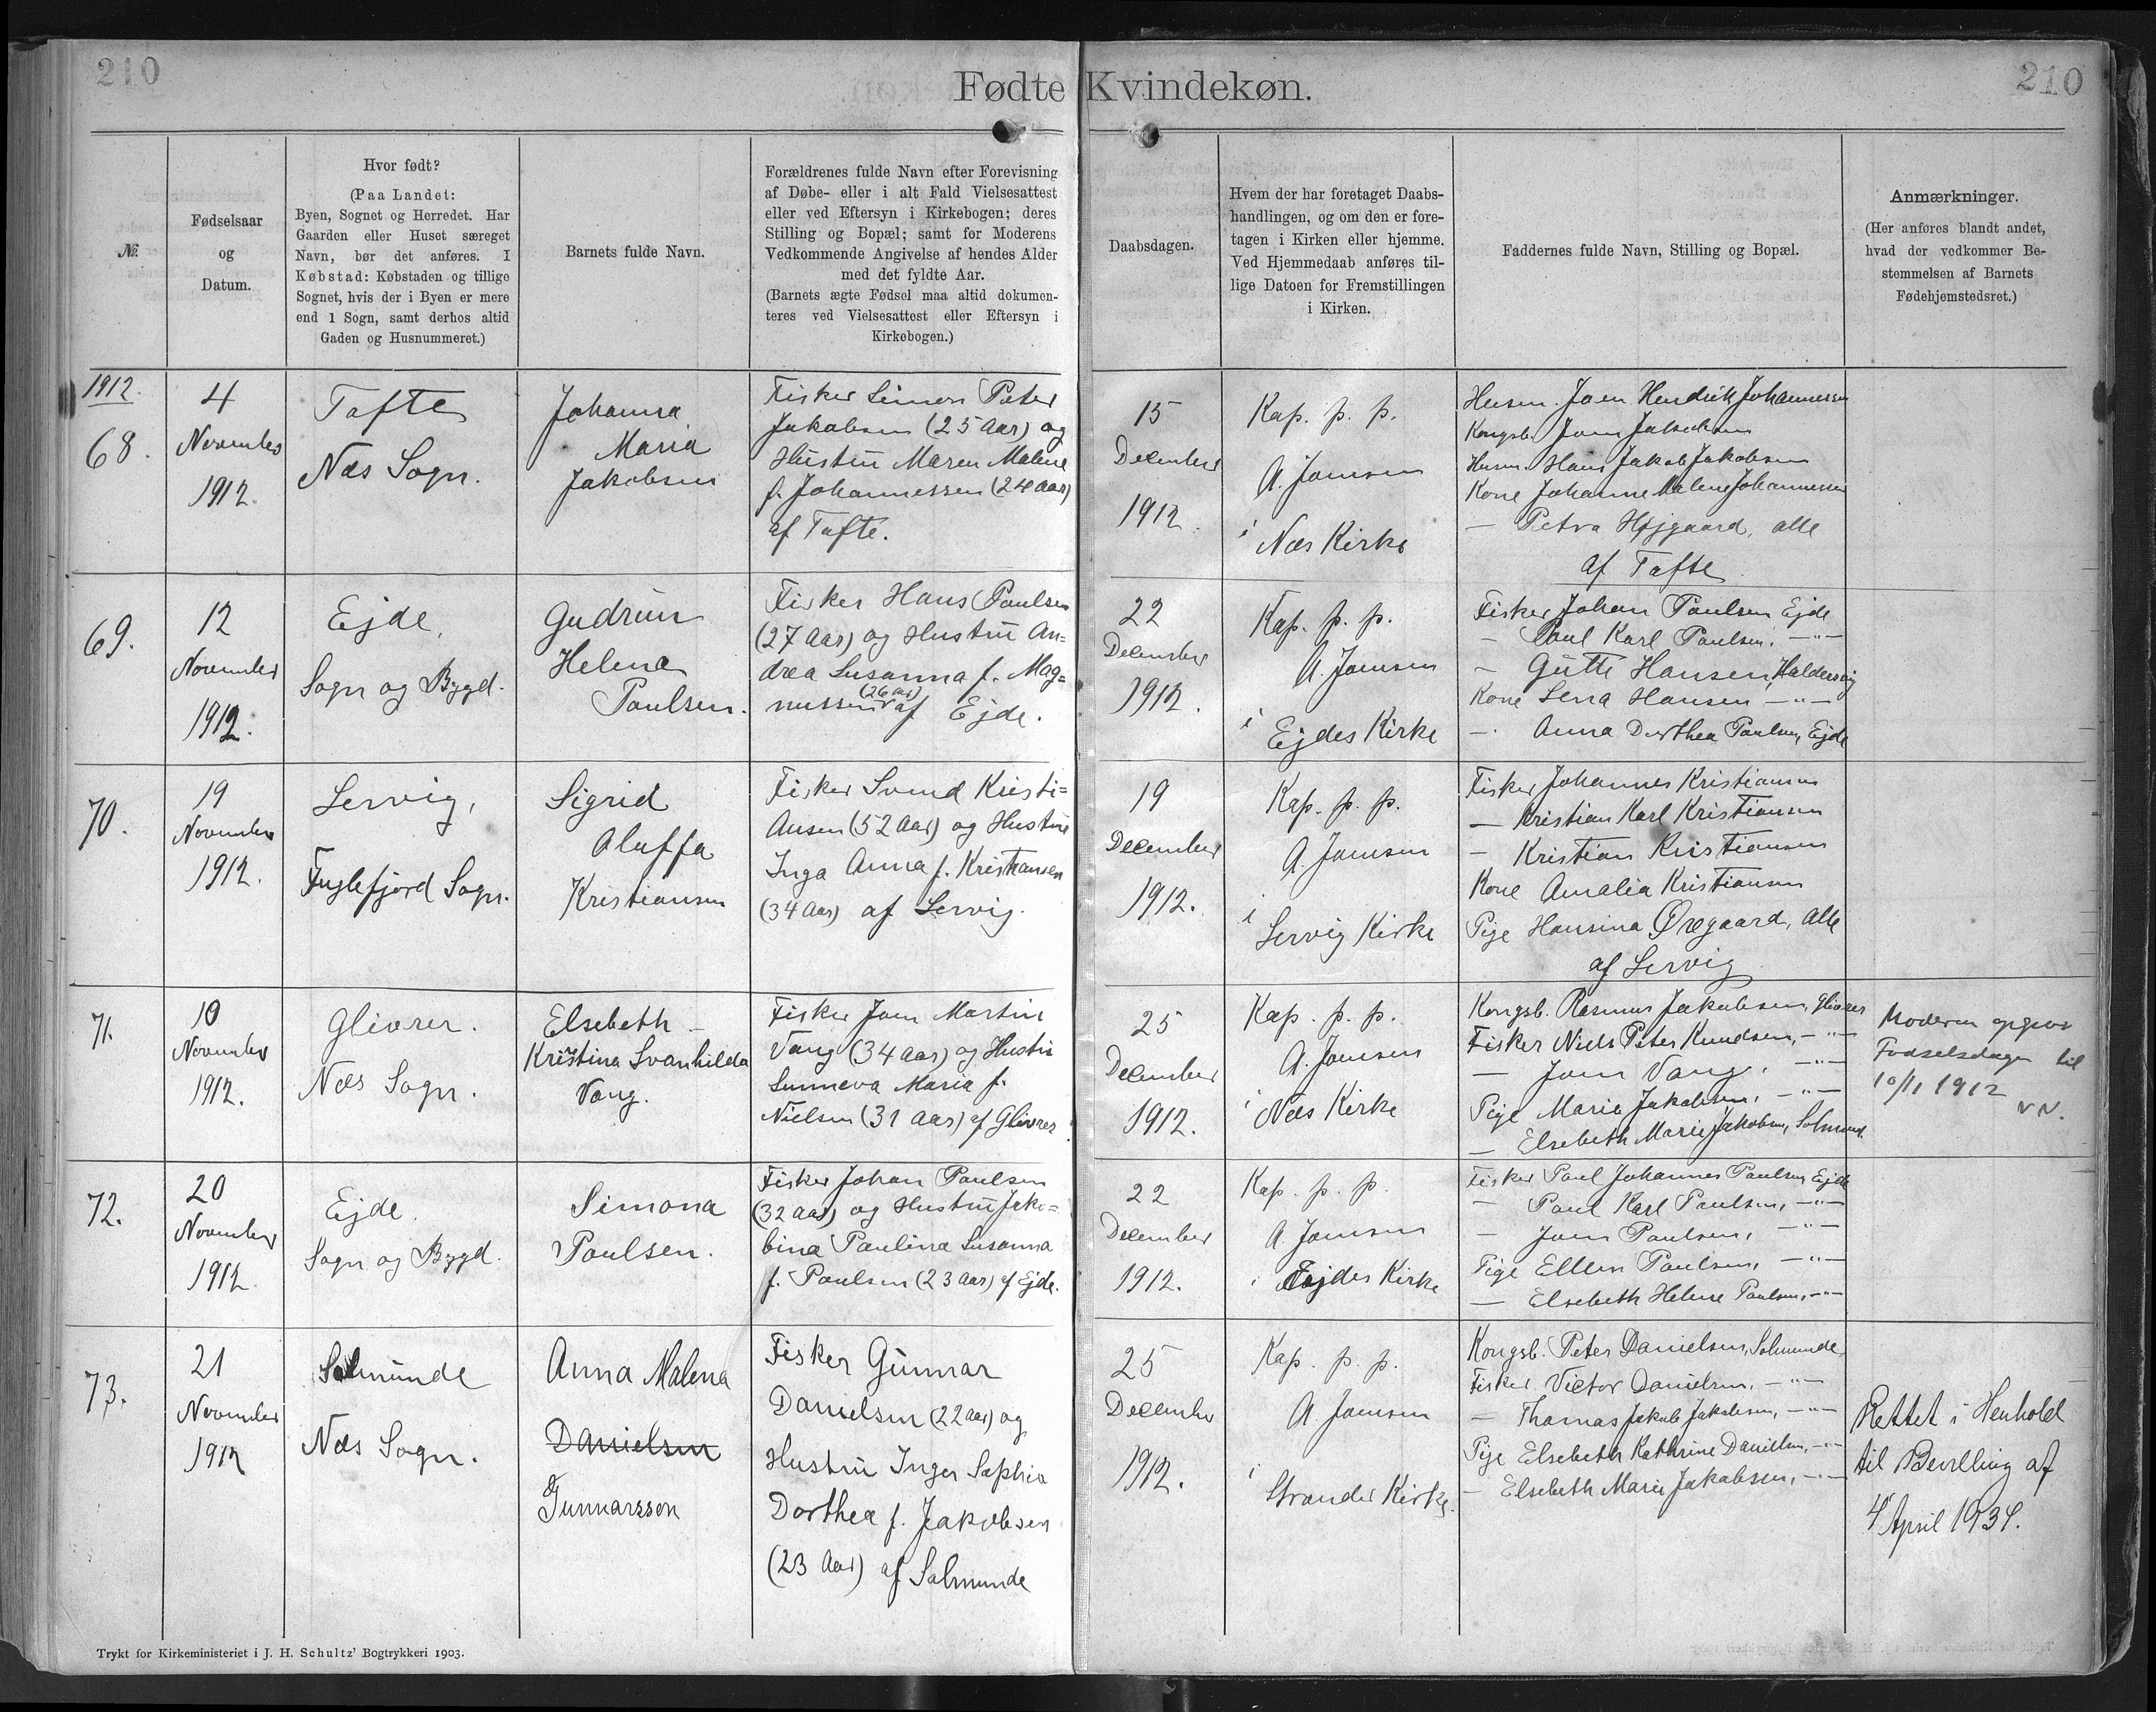 210
210
Fødte Kvindekøn.
№.
Fødselsaar
og
Datum.
Hvor født?
(Paa Landet:
Byen, Sognet og Herredet. Har
Gaarden eller Huset særeget
Navn, bør det anføres. I
Købstad: Købstaden og tillige
Sognet, hvis der i Byen er mere
end 1 Sogn, samt derhos altid
Gaden og Husnummeret.)
Barnets fulde Navn.
Forældrenes fulde Navn efter Forevisning
af Døbe- eller i alt Fald Vielsesattest
eller ved Eftersyn i Kirkebogen; deres
Stilling og Bopæl; samt for Moderens
Vedkommende Angivelse af hendes Alder
med det fyldte Aar.
(Barnets ægte Fødsel maa altid dokumen-
teres ved Vielsesattest eller Eftersyn i
Kirkebogen.)
Daabsdagen.
Hvem der har foretaget Daabs-
handlingen, og om den er fore-
tagen i Kirken eller hjemme.
Ved Hjemmedaab anføres til-
lige Datoen for Fremstillingen
i Kirken.
Faddernes fulde Navn, Stilling og Bopæl.
Anmærkninger.
(Her anføres blandt andet,
hvad der vedkommer Be-
stemmelsen af Barnets
Fødehjemstedsret.)
1912.
68.
4
November
1912.
Tofte
Næs Sogn.
Johanna
Maria
Jakobsen
Fisker Simon Peter
Jakobsen (25 Aar) og
Hustru Maren Malene
f. Johannessen (24 Aar)
af Tofte.
15
December
1912.
Kap. p. p.
A. Joensen
i Næs Kirke
Husm. Joen Hendrik Johannessen
Kongsb. Joen Jakobsen
Husm. Hans Jakob Jakobsen
Kone Johanne Malene Johannessen
— Petra Højgaard, alle
af Tofte
69.
12
November
1912.
Ejde,
Sogn og Bygd.
Gudrun
Helena
Poulsen.
Fisker Hans Poulsen
(27 Aar) og Hustru An=
drea Susanna f. Mag=
nussen (26 Aar) af Ejde.
22
December
1912.
Kap. p. p.
A. Joensen
i Ejdes Kirke
Fisker Johan Poulsen Ejde
— Poul Karl Poulsen, —"—
— Gutte Hansen, Haldersvig
Kone Lena Hansen —"—
— Anna Dorthea Poulsen, Ejde
70.
19
November
1912.
Lervig,
Fuglefjord Sogn.
Sigrid
Oluffa
Kristiansen
Fisker Svend Kristi=
ansen (52 Aar) og Hustru
Inga Anna f. Kristiansen
(34 Aar) af Lervig.
19
December
1912.
Kap. p. p.
A. Joensen
i Lervig Kirke
Fisker Johannes Kristiansen
— Kristian Karl Kristiansen
— Kristian Kristiansen
Kone Amalia Kristiansen
Pige Hansina Øregaard, alle
af Lervig
71.
10
November
1912.
Glivrer.
Næs Sogn.
Elsebeth
Kristina Svanhilda
Vang.
Fisker Joen Martin
Vang (34 Aar) og Hustru
Sunneva Maria f.
Nielsen (31 Aar) af Glivrer
25
December
1912.
Kap. p. p.
A. Joensen
i Næs Kirke
Kongsb. Rasmus Jakobsen, Glivrer
Fisker Niels Peter Knudsen, —"—
— Joen Vang, —"—
Pige Maria Jakobsen, —"—
— Elsebeth Marie Jakobsen, Solmund.
Moderen opgiver
Fødselsdagen til
10/11 1912
72.
20
November
1912.
Ejde.
Sogn og Bygd.
Simona
Poulsen.
Fisker Johan Poulsen
(32 Aar) og Hustru Jako=
bina Paulina Susanna
f. Poulsen (23 Aar) af Ejde.
22
December
1912.
Kap. p. p.
A. Joensen
i Ejdes Kirke
Fisker Poul Johannes Poulsen, Ejde
— Poul Karl Poulsen, —"—
— Joen Poulsen, —"—
Pige Ellen Poulsen, —"—
— Elsebeth Helene Poulsen, —"—
73.
21
November
1912
Solmunde
Næs Sogn.
Anna Malena
Danielsen
Gunnarsson
Fisker Gunnar
Danielsen (22 Aar) og
Hustru Inger Sophia
Dorthea f. Jakobsen
(23 Aar) af Solmunde
25
December
1912.
Kap. p. p.
A. Joensen
i Strander Kirke.
Kongsb. Peter Danielsen, Solmunde,
Fisker Victor Danielsen, —"—
— Thomas Jakob Jakobsen, —"—
Pige Elsebeth Kathrine Danielsen, —"—
— Elsebeth Marie Jakobsen, —"—
Rettet i Henhold
til Bevilling af
4' April 1934.
Trykt for Kirkeministeriet i J. H. Schultz' Bogtrykkeri 1903.